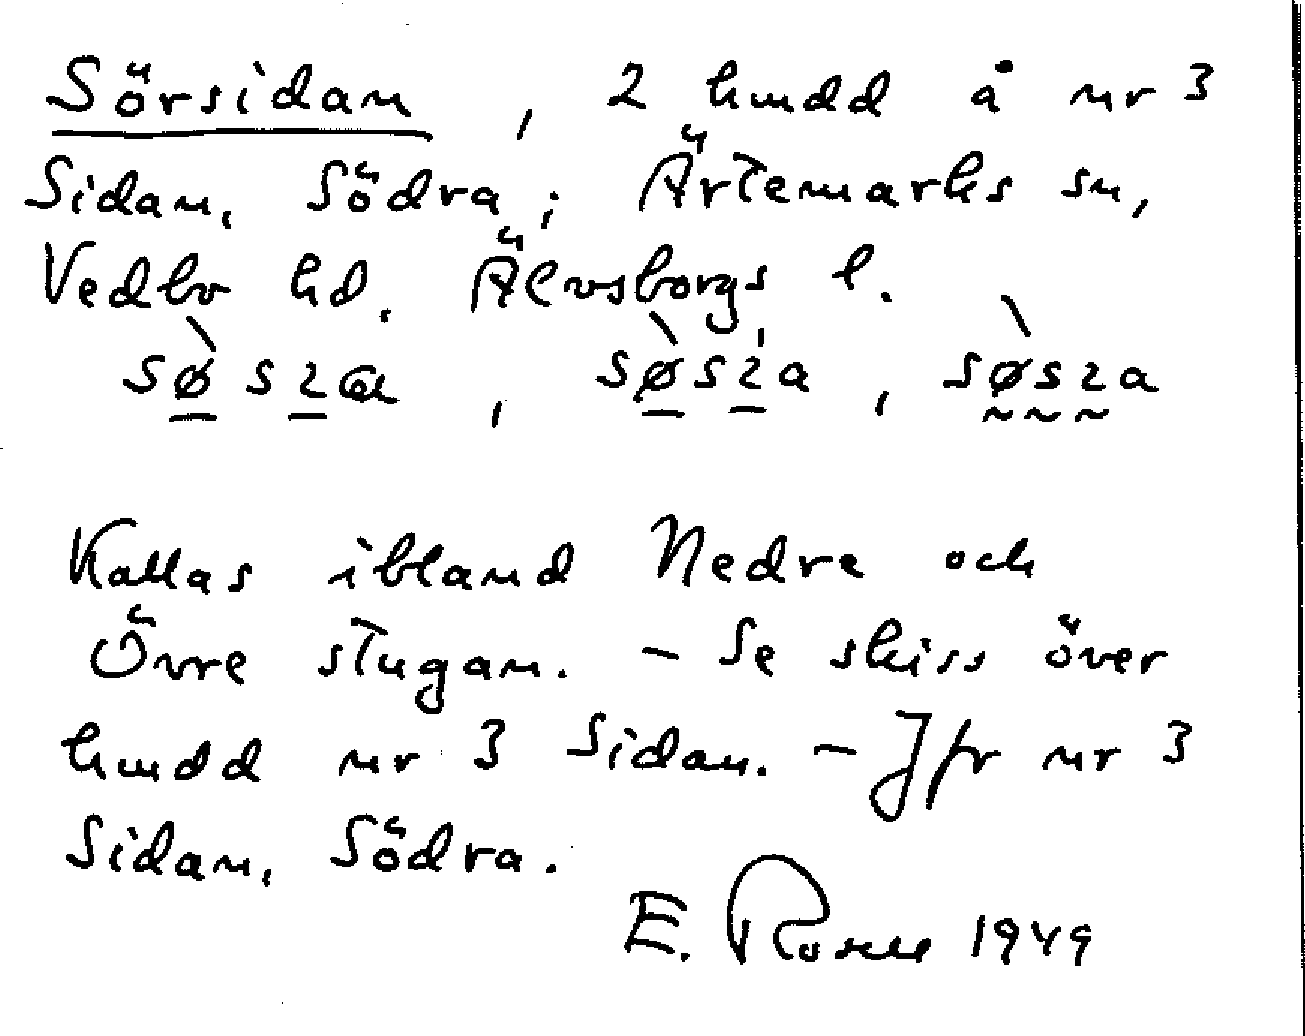 Sörsidan, 2 hmdd å nr 3
Sidan, Södra; Ärtemarks sn,
Vedbo hd. Älvsborgs l.
Kallas ibland Nedre och
Övre stugan. – Se skiss över
hmdd nr 3 Sidan. – Jfr nr 3
Sidan, Södra.
E. Rosell 1949